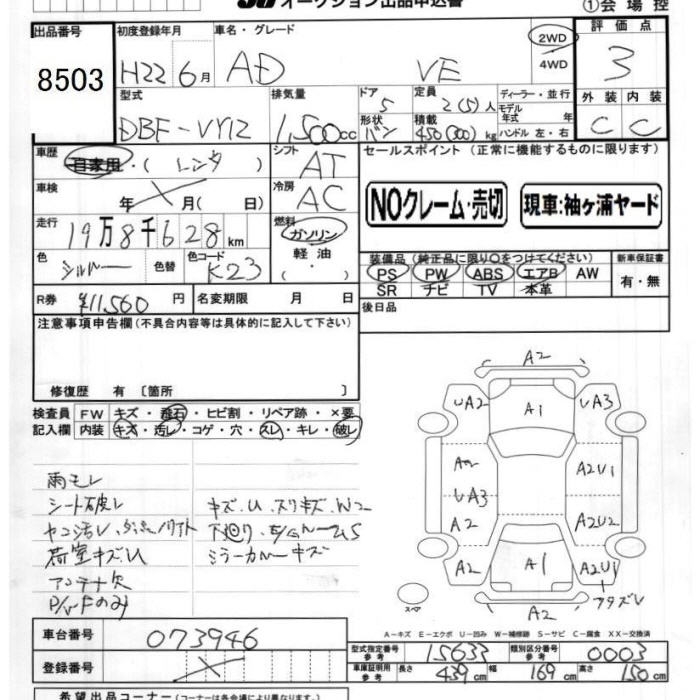 オークション出品申込書
①会場控
出品番号 8503
初度登録年月 H22 6月
車名・グレード AD VE
2WD 4WD
評価点 3
外装 C 内装 C
型式 DBF-VY12
排気量 1,500cc
ドア 5 形状 バン
定員 2(5)人 積載 450(300)kg
ディーラー・並行 モデル年式 年 ハンドル 左・右
車歴 自家用・(レンタ)
シフト AT
車検 年 月(日)
冷房 AC
走行 19万8千628km
燃料 ガソリン 軽油
色 シルバー 色替 色コード K23
R券 ¥11,560円
名変期限 月 日
セールスポイント (正常に機能するものに限ります)
NOクレーム・売切
現車:袖ヶ浦ヤード
装備品(純正品に限り○をつけてください)
PS PW ABS エアB AW
SR ナビ TV 本革
新車保証書 有・無
後日品
注意事項申告欄(不具合内容等は具体的に記入して下さい)
修復歴 有 〔箇所 〕
検査員記入欄
FW キズ・飛石・ヒビ割・リペア跡・×要
内装 キズ・汚レ・コゲ・穴・スレ・キレ・破レ
雨モレ
シート破レ
荷室キズU
アンテナ欠
キズ、U、スリキズ、W2
ミラーカバーキズ
A2
UA2 A1 UA3
A2 A2U1
UA3
A2 A2U2
A2 A1 A2U1
A2
スペア
A-キズ E-エクボ U-凹み W-補修跡 S-サビ C-腐食 XX-交換済
車台番号 073946
登録番号
型式指定番号 参考 15633
類別区分番号 参考 0003
車庫証明用 参考 長さ 439cm 幅 169cm 高さ 150cm
希望出品コーナー(コーナーは各会場により異なります。)